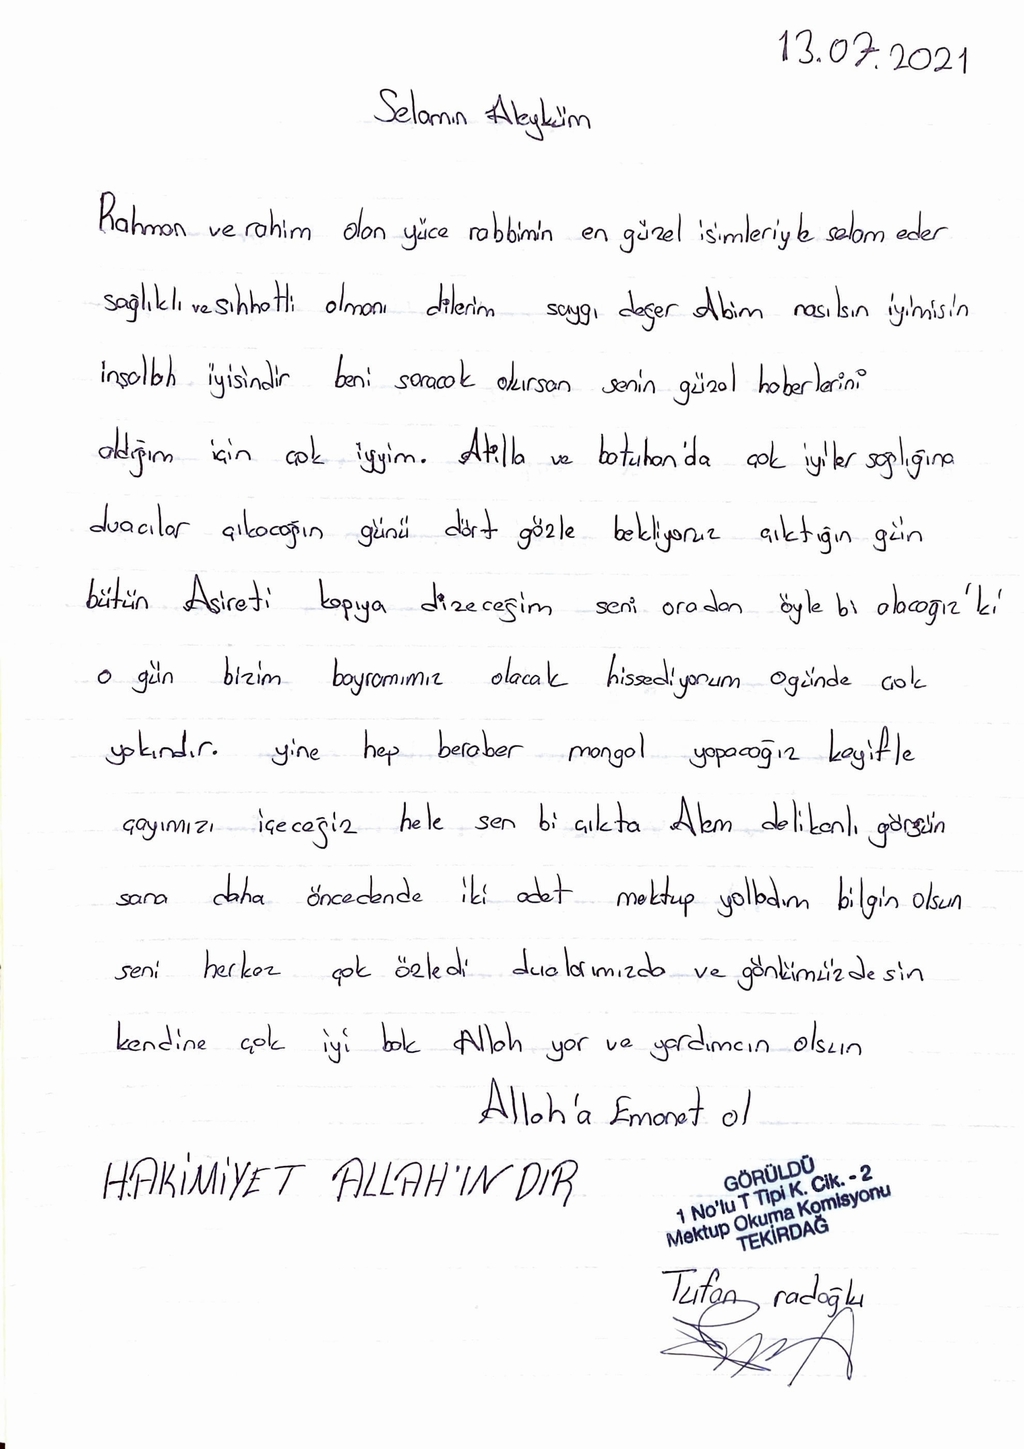 13.07.2021
Selamın Aleyküm
Rahman ve rahim olan yüce rabbimin en güzel isimleriyle selam eder
sağlıklı ve sıhhatli olmanı dilerim saygı değer Abim nasılsın iyimisin
inşallah iyisindir beni soracak olursan senin güzel haberlerini
aldığım için çok iyyim. Atilla ve batuhan'da çok iyiler sağlığına
duacılar çıkacağın günü dört gözle bekliyoruz çıktığın gün
bütün Asireti kapıya dizeceğim seni oradan öyle bi alacağız'ki
o gün bizim bayramımız olacak hissediyorum ogünde çok
yakındır. yine hep beraber mangal yapacağız keyifle
çayımızı içeceğiz hele sen bi çıkta Alem delikanlı görsün
sana daha öncedende iki adet mektup yolladım bilgin olsun
seni herkez çok özledi dualarımızda ve gönlümüzdesin
kendine çok iyi bak Allah yar ve yardımcın olsun
Allah'a Emanet ol
HAKİMİYET ALLAH'INDIR
GÖRÜLDÜ
1 No'lu T Tipi K. Cik. - 2
Mektup Okuma Komisyonu
TEKİRDAĞ
Tufan radoğlu